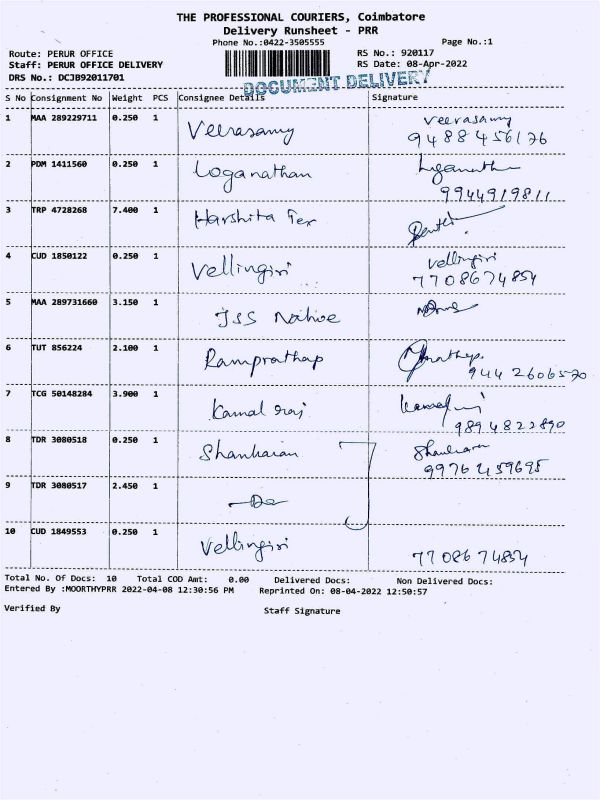 THE PROFESSIONAL COURIERS, Coimbatore
Delivery Runsheet - PRR
Phone No.:0422-3505555 Page No.:1
Route: PERUR OFFICE RS No.: 920117
Staff: PERUR OFFICE DELIVERY RS Date: 08-Apr-2022
DRS No.: DCJB92011701
DOCUMENT DELIVERY
S No Consignment No Weight PCS Consignee Details Signature
1 MAA 289229711 0.250 1 Veerasamy Veerasamy
9488456176
2 PDM 1411560 0.250 1 Loganathan
9944919811
3 TRP 4728268 7.400 1 Harshita Tex
4 CUD 1850122 0.250 1 Vellingiri Vellingiri
7708674854
5 MAA 289731660 3.150 1 JSS
6 TUT 856224 2.100 1 Ramprathap
9442606570
7 TCG 50148284 3.900 1 Kamal raj
9894822890
8 TDR 3080518 0.250 1 Shankaran Shankaran
9976459695
9 TDR 3080517 2.450 1 -Do-
10 CUD 1849553 0.250 1 Vellingiri
7708674854
Total No. Of Docs: 10 Total COD Amt: 0.00 Delivered Docs: Non Delivered Docs:
Entered By :MOORTHYPRR 2022-04-08 12:30:56 PM Reprinted On: 08-04-2022 12:50:57
Verified By Staff Signature